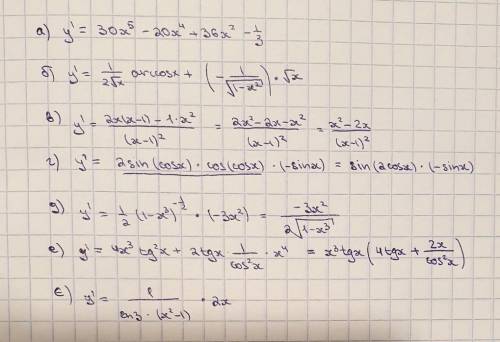 а) y' = 30x⁵ - 20x⁴ + 36x² - 1/3
б) y' = 1/(2√x) arccosx + (- 1/√(1-x²)) · √x
в) y' = (2x(x-1) - 1·x²)/(x-1)² = (2x²-2x-x²)/(x-1)² = (x²-2x)/(x-1)²
г) y' = 2sin(cosx) · cos(cosx) · (-sinx) = sin(2cosx) · (-sinx)
д) y' = 1/2 (1-x³)^(-1/2) · (-3x²) = -3x²/(2√(1-x³))
е) y' = 4x³ tg²x + 2tgx · 1/cos²x · x⁴ = x³tgx(4tgx + 2x/cos²x)
є) y' = 1/(ln3 · (x²-1)) · 2x